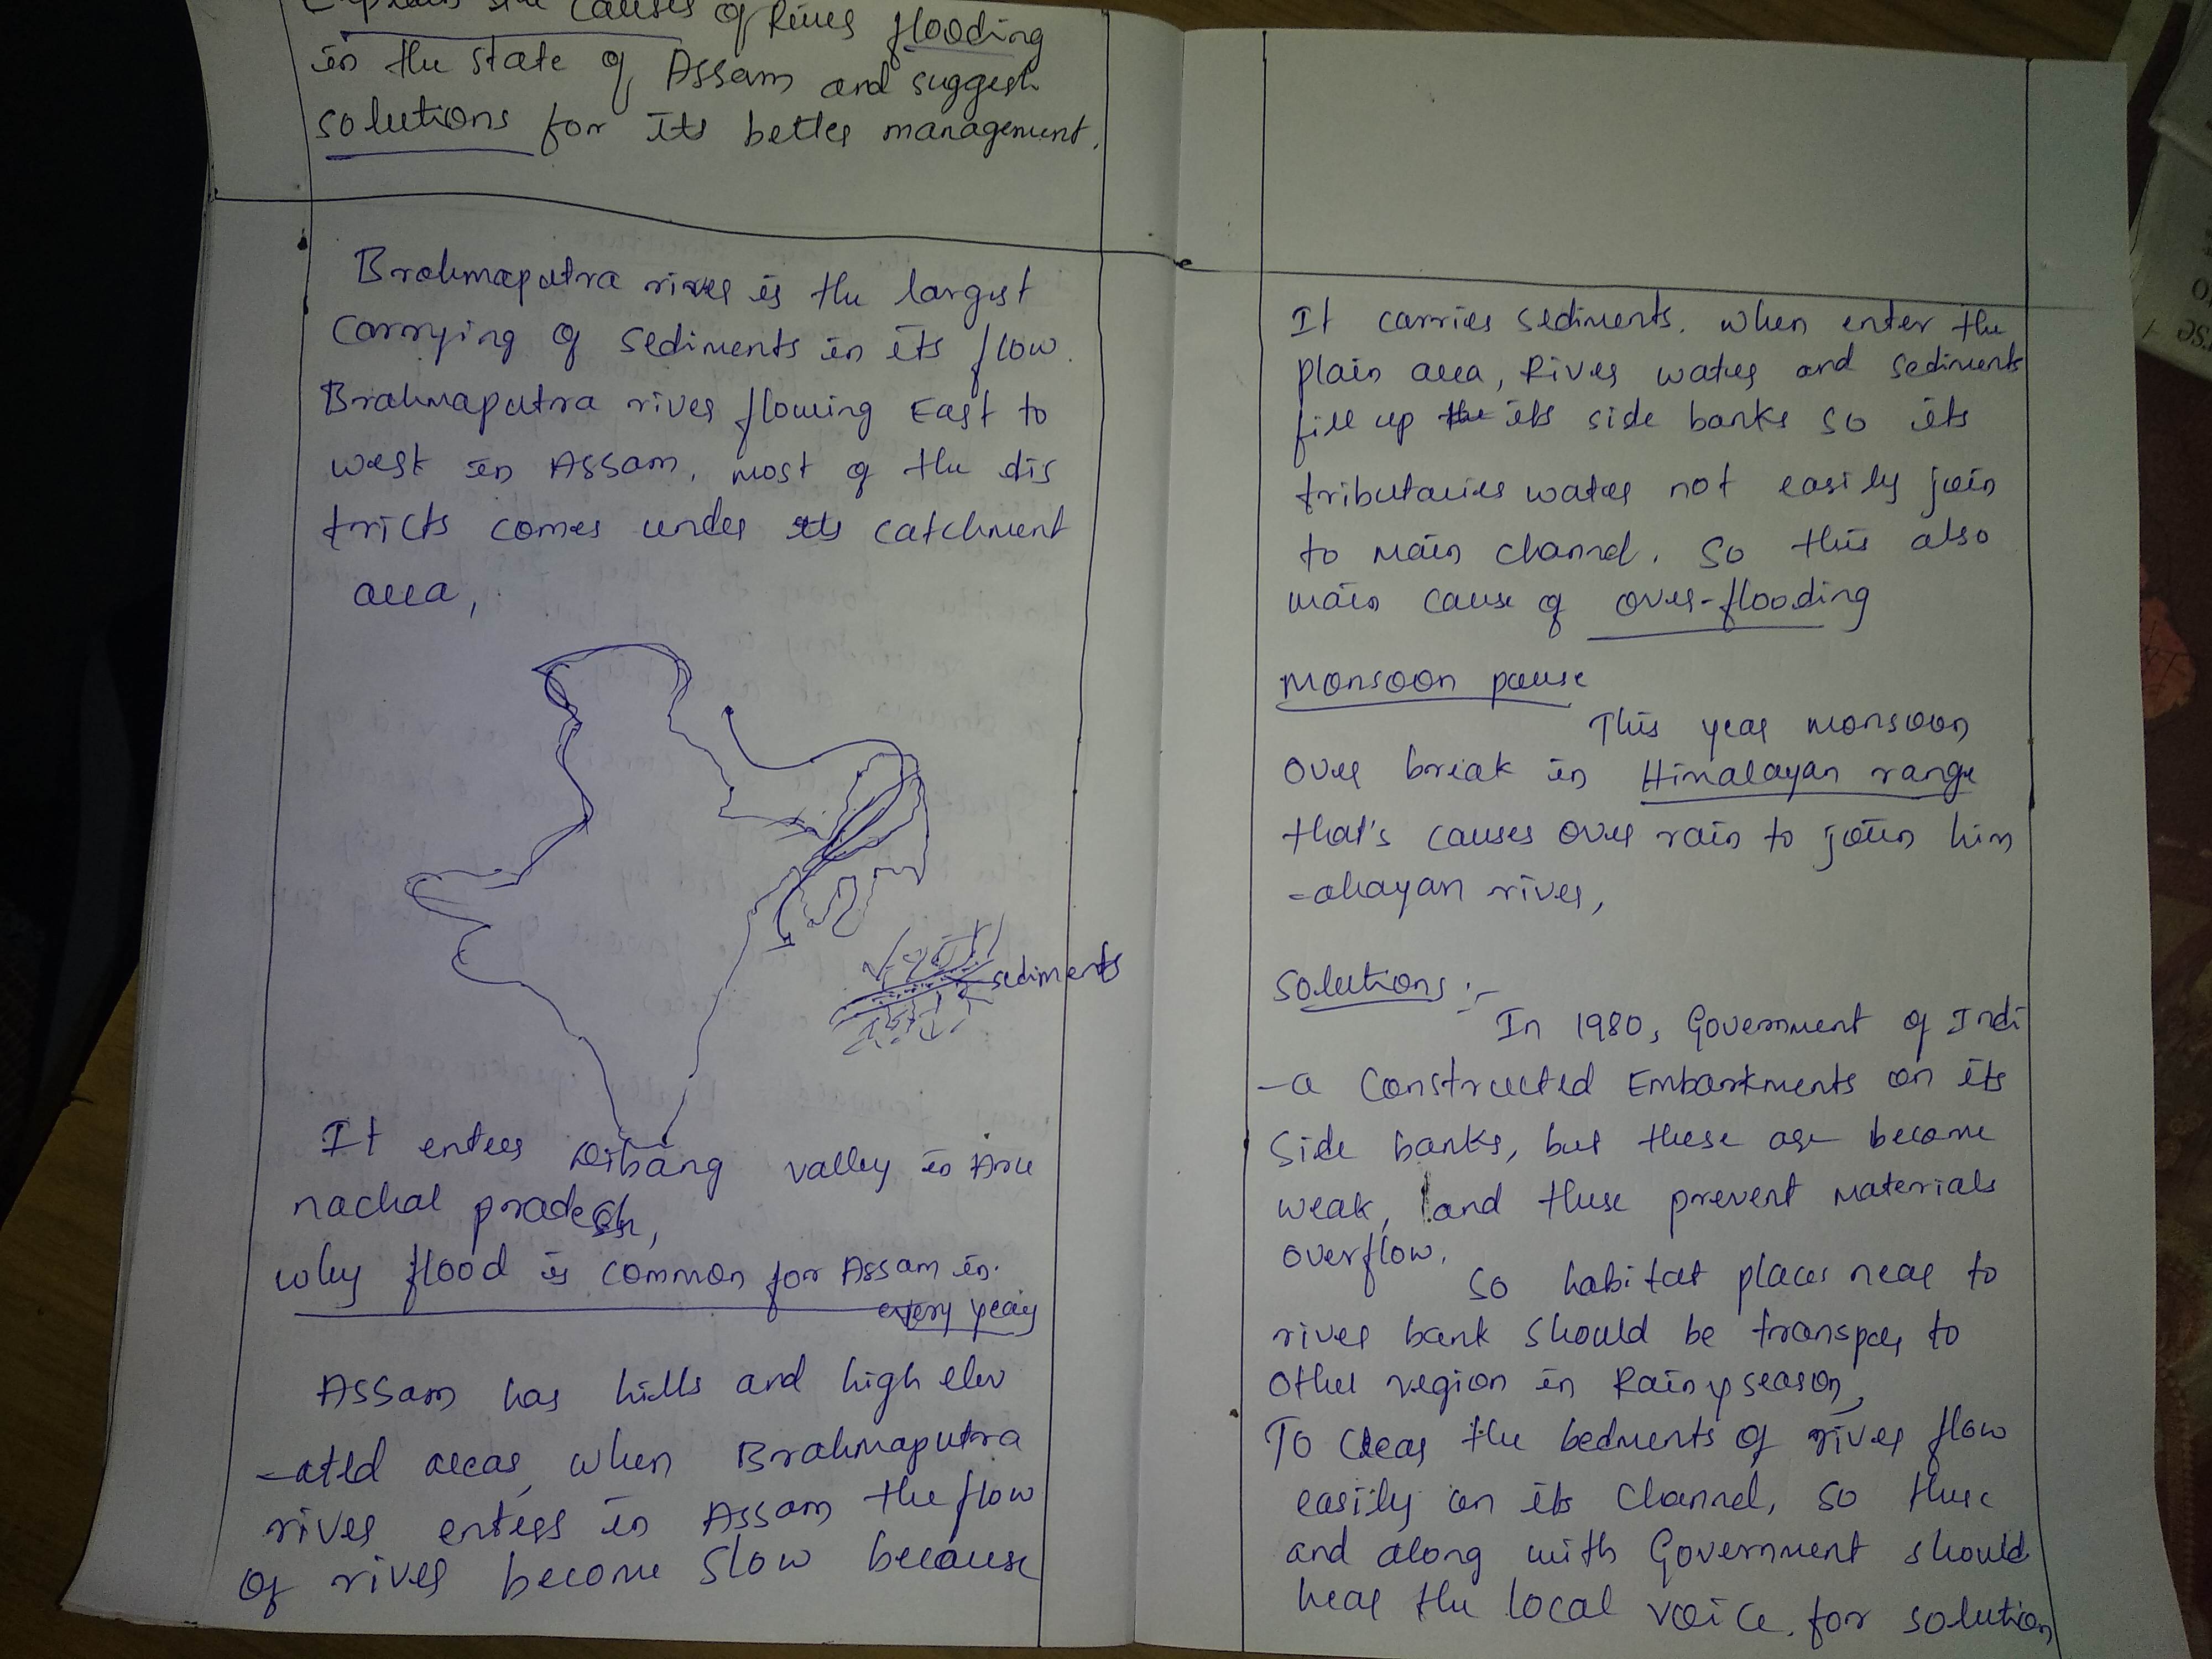 Explain the causes of River flooding
in the state of Assam and suggest
solutions for its better management.
Brahmaputra river is the largest
carrying of sediments in its flow.
Brahmaputra river flowing East to
west in Assam, most of the dis
tricts comes under its catchment
area,
sediments
It enters Dibang valley in Aru
nachal pradesh,
why flood is common for Assam in
every year
Assam has hills and high elev
-ated areas, when Brahmaputra
river enters in Assam the flow
of river become slow because
It carries sediments. when enter the
plain area, River water and sediments
fill up the its side banks so its
tributaries water not easily join
to main channel. So this also
main cause of over-flooding
Monsoon pause
This year monsoon
over break in Himalayan range
that's causes over rain to join him
-alayan river,
Solutions :-
In 1980, Government of Indi
-a Constructed Embankments on its
side banks, but these are become
weak, and these prevent materials
overflow.
So habitat places near to
river bank should be to
other region in Rainy season,
To Clear the bedments of river flow
easily on its channel, so these
and along with Government should
hear the local voice for solution